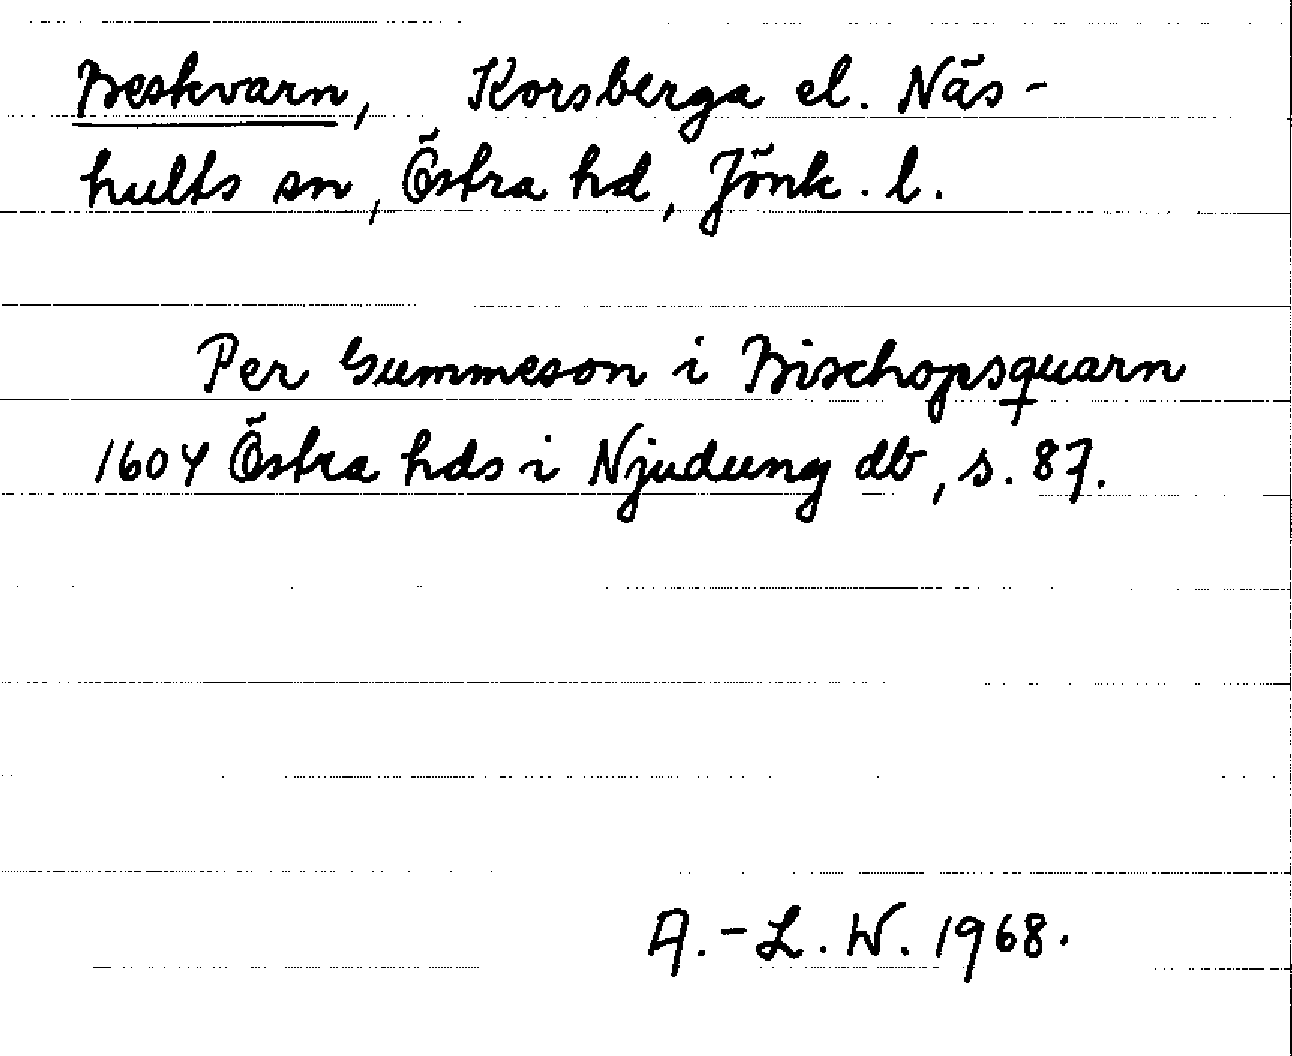 Beskvarn, Korsberga el. Näs-
hults sn, Östra hd, Jönk. l.
Per Gummeson i Bischopsquarn
1604 Östra hds i Njudung db, s. 87.
A.-L. W. 1968.